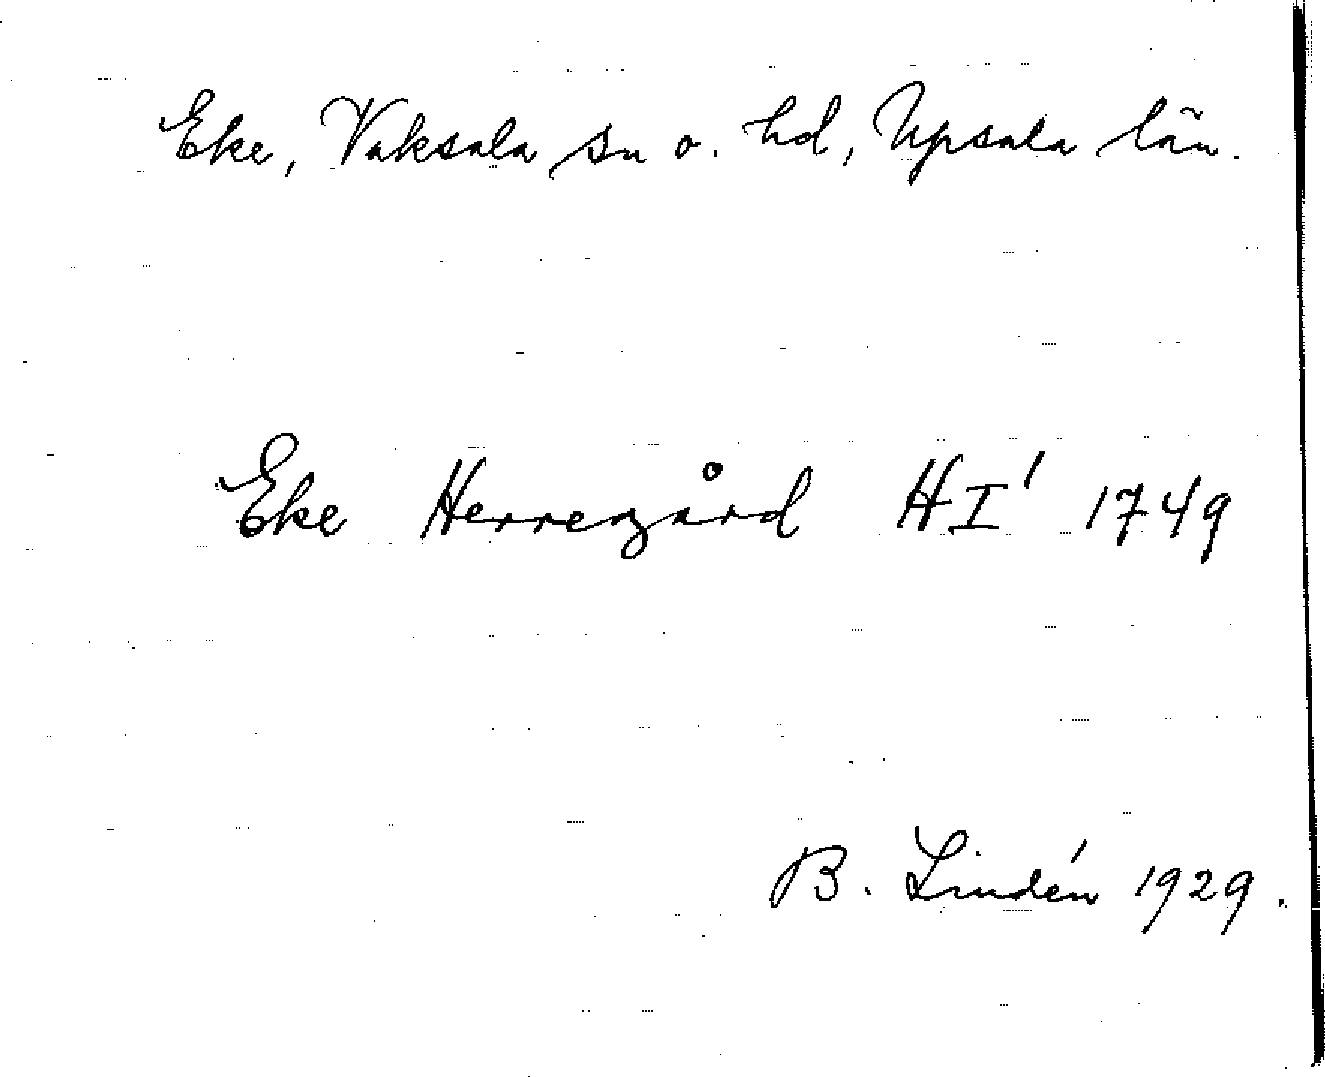 Eke, Vaksala sn o. hd, Upsala län.
Eke Herregård HI' 1749
B. Lindén 1929.